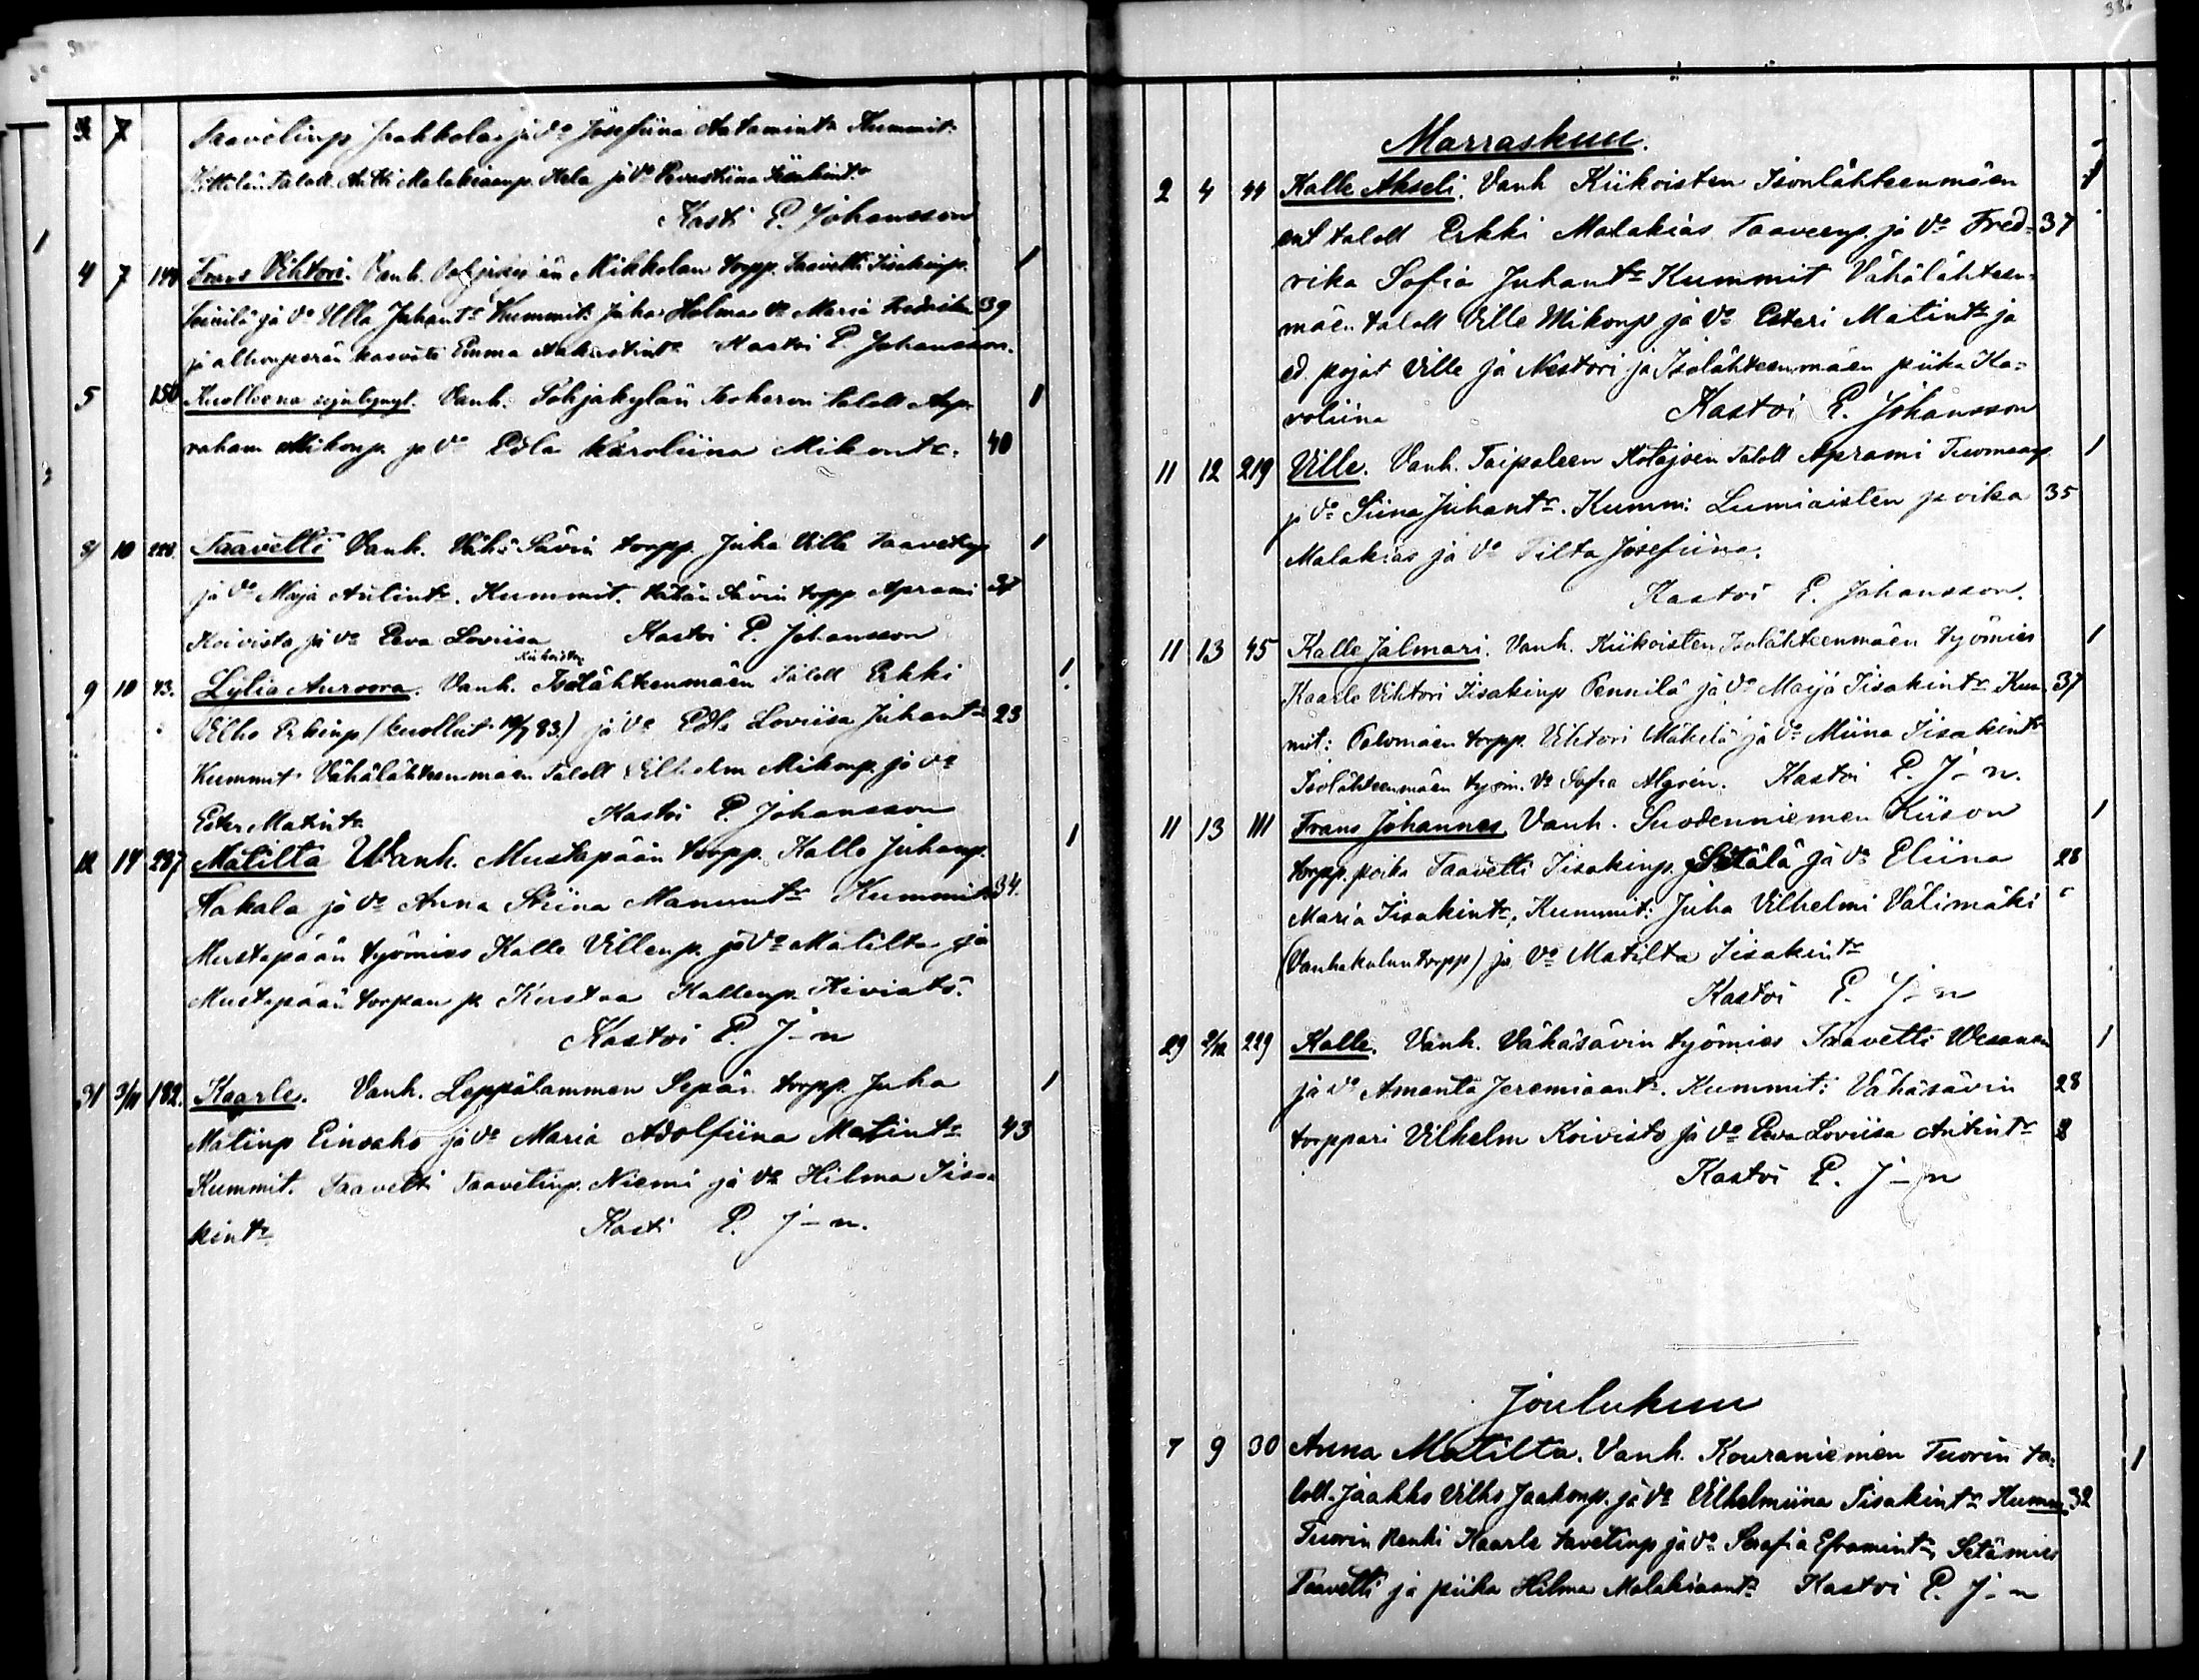 3 7 Taavetinp Jaakkola ja Vo Josefiina Aataminta Kummit:
taloll. Antti Malakiaanp. Kela ja Vo Eevastiina Iisakint.
Kasti E. Johansson
4 7 144 Frans Vihtori. Vanh. Mikkolan torpp. Taavetti Iisakinp.
ja Vo Ulla Juhant. Kummit: Juha Holma Vo Maria Fredrika 39
ja kasvatti Emma Kastoi E. Johansson.
5 150 Kuolleena syntynyt. Vanh. Pohjakylän taloll Ap-
raham Mikonp. ja Vo Edla Karoliina Mikontr. 40
8 10 228. Taavetti Vanh. Vähä Sävin torpp. Juha Ville Taavetinp
ja Vo Maja Antintr. Kummit. Vähän Sävin torpp Aprami 31
Koivisto ja Vo Eeva Loviisa Kastoi E. Johansson
Kiikoisten
9 10 43. Lylia Auroora. Vanh. Isolähteenmäen Taloll Erkki
Vilho Erkinp (kuollut 83.) ja Vo Edla Loviisa Juhantr 23
Kummit Vähälähteenmäen Taloll Vilhelm Mikonp. ja Vo
Ester Matintr Kastoi E. Johansson
12 14 237 Matilta Wanh. Mustapään torpp. Kalle Juhanp.
Hakala ja Vo Anna Stiina Manuntr Kummit 34.
Mustapään työmies Kalle Villenp. ja Vo Matilta ja
Mustapään torpan p. Kustaa Kallenp. Kivistö.
Kastoi E. J-n
31 3/11 182. Kaarle. Vanh. Leppälammen Sepän torpp. Juha
Matinp Einoaho ja Vo Maria Adolfiina Matintr 43
Kummit. Taavetti Taavetinp. Niemi ja Vo Hilma Iisa
kintr Kasti E. J-n.
Marraskuu.
2 4 44 Kalle Akseli. Vanh Kiikoisten Isonlähteenmäen
ent taloll Erkki Malakias Taaveenp. ja Vo Fred- 37
rika Sofia Juhantr Kummit Vähälähteen-
mäen taloll Ville Mikonp ja Vo Esteri Matintr ja
ed. pojat Ville ja Nestori ja Isolähteenmäen piika Ka-
roliina Kastoi E. Johansson
11 12 219 Ville. Vanh. Taipaleen Kotajoen Taloll Aprami Tuomaanp
ja Vo Siina Juhantr. Kumm: Lumiaisten poika 35
Malakias ja Vo Tilta Josefiina.
Kastoi E. Johansson.
11 13 45 Kalle Jalmari. Vanh. Kiikoisten Isolähteenmäen työmies
Kaarle Vihtori Iisakinp Pennilä ja Vo Maija Iisakintr Kum- 37
mit: Palomäen torpp. Vihtori Mäkelä ja Vo Miina Iisakintr
Isolähteenmäen työm. Vo Sofia Algren. Kastoi E. J-n.
11 13 111 Frans Johannes Vanh. Suodenniemen Kiison
torpp. poika Taavetti Iisakinp. Setälä ja Vo Eliina 28
Maria Iisakintr. Kummit: Juha Vilhelmi Välimäki
(Vanhakalun torpp) ja Vo Matilta Iisakintr
Kastoi E. J-n
29 2/12 229 Kalle. Vanh. Vähäsävin työmies Taavetti Wesanen
ja Vo Amanta Jeremiaantr. Kummit: Vähäsävin 28
torppari Vilhelm Koivisto ja Vo Eeva Loviisa Antintr
Kastoi E. J-n
Joulukuu
7 9 30 Anna Matilta. Vanh. Kouraniemen Tuorin ta-
loll. Jaakko Vilho Jaakonp. ja Vo Vilhelmiina Iisakintr Kumm. 32
Tuorin Renki Kaarle Tavetinp ja Vo Serafia Eframintr, Setämies
Taavetti ja piika Hilma Malakiaantr Kastoi E. J-n